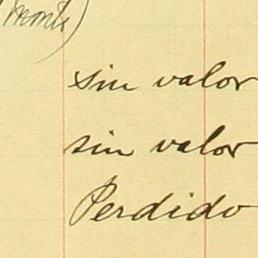 (Monte)
sin valor
sin valor
Perdido